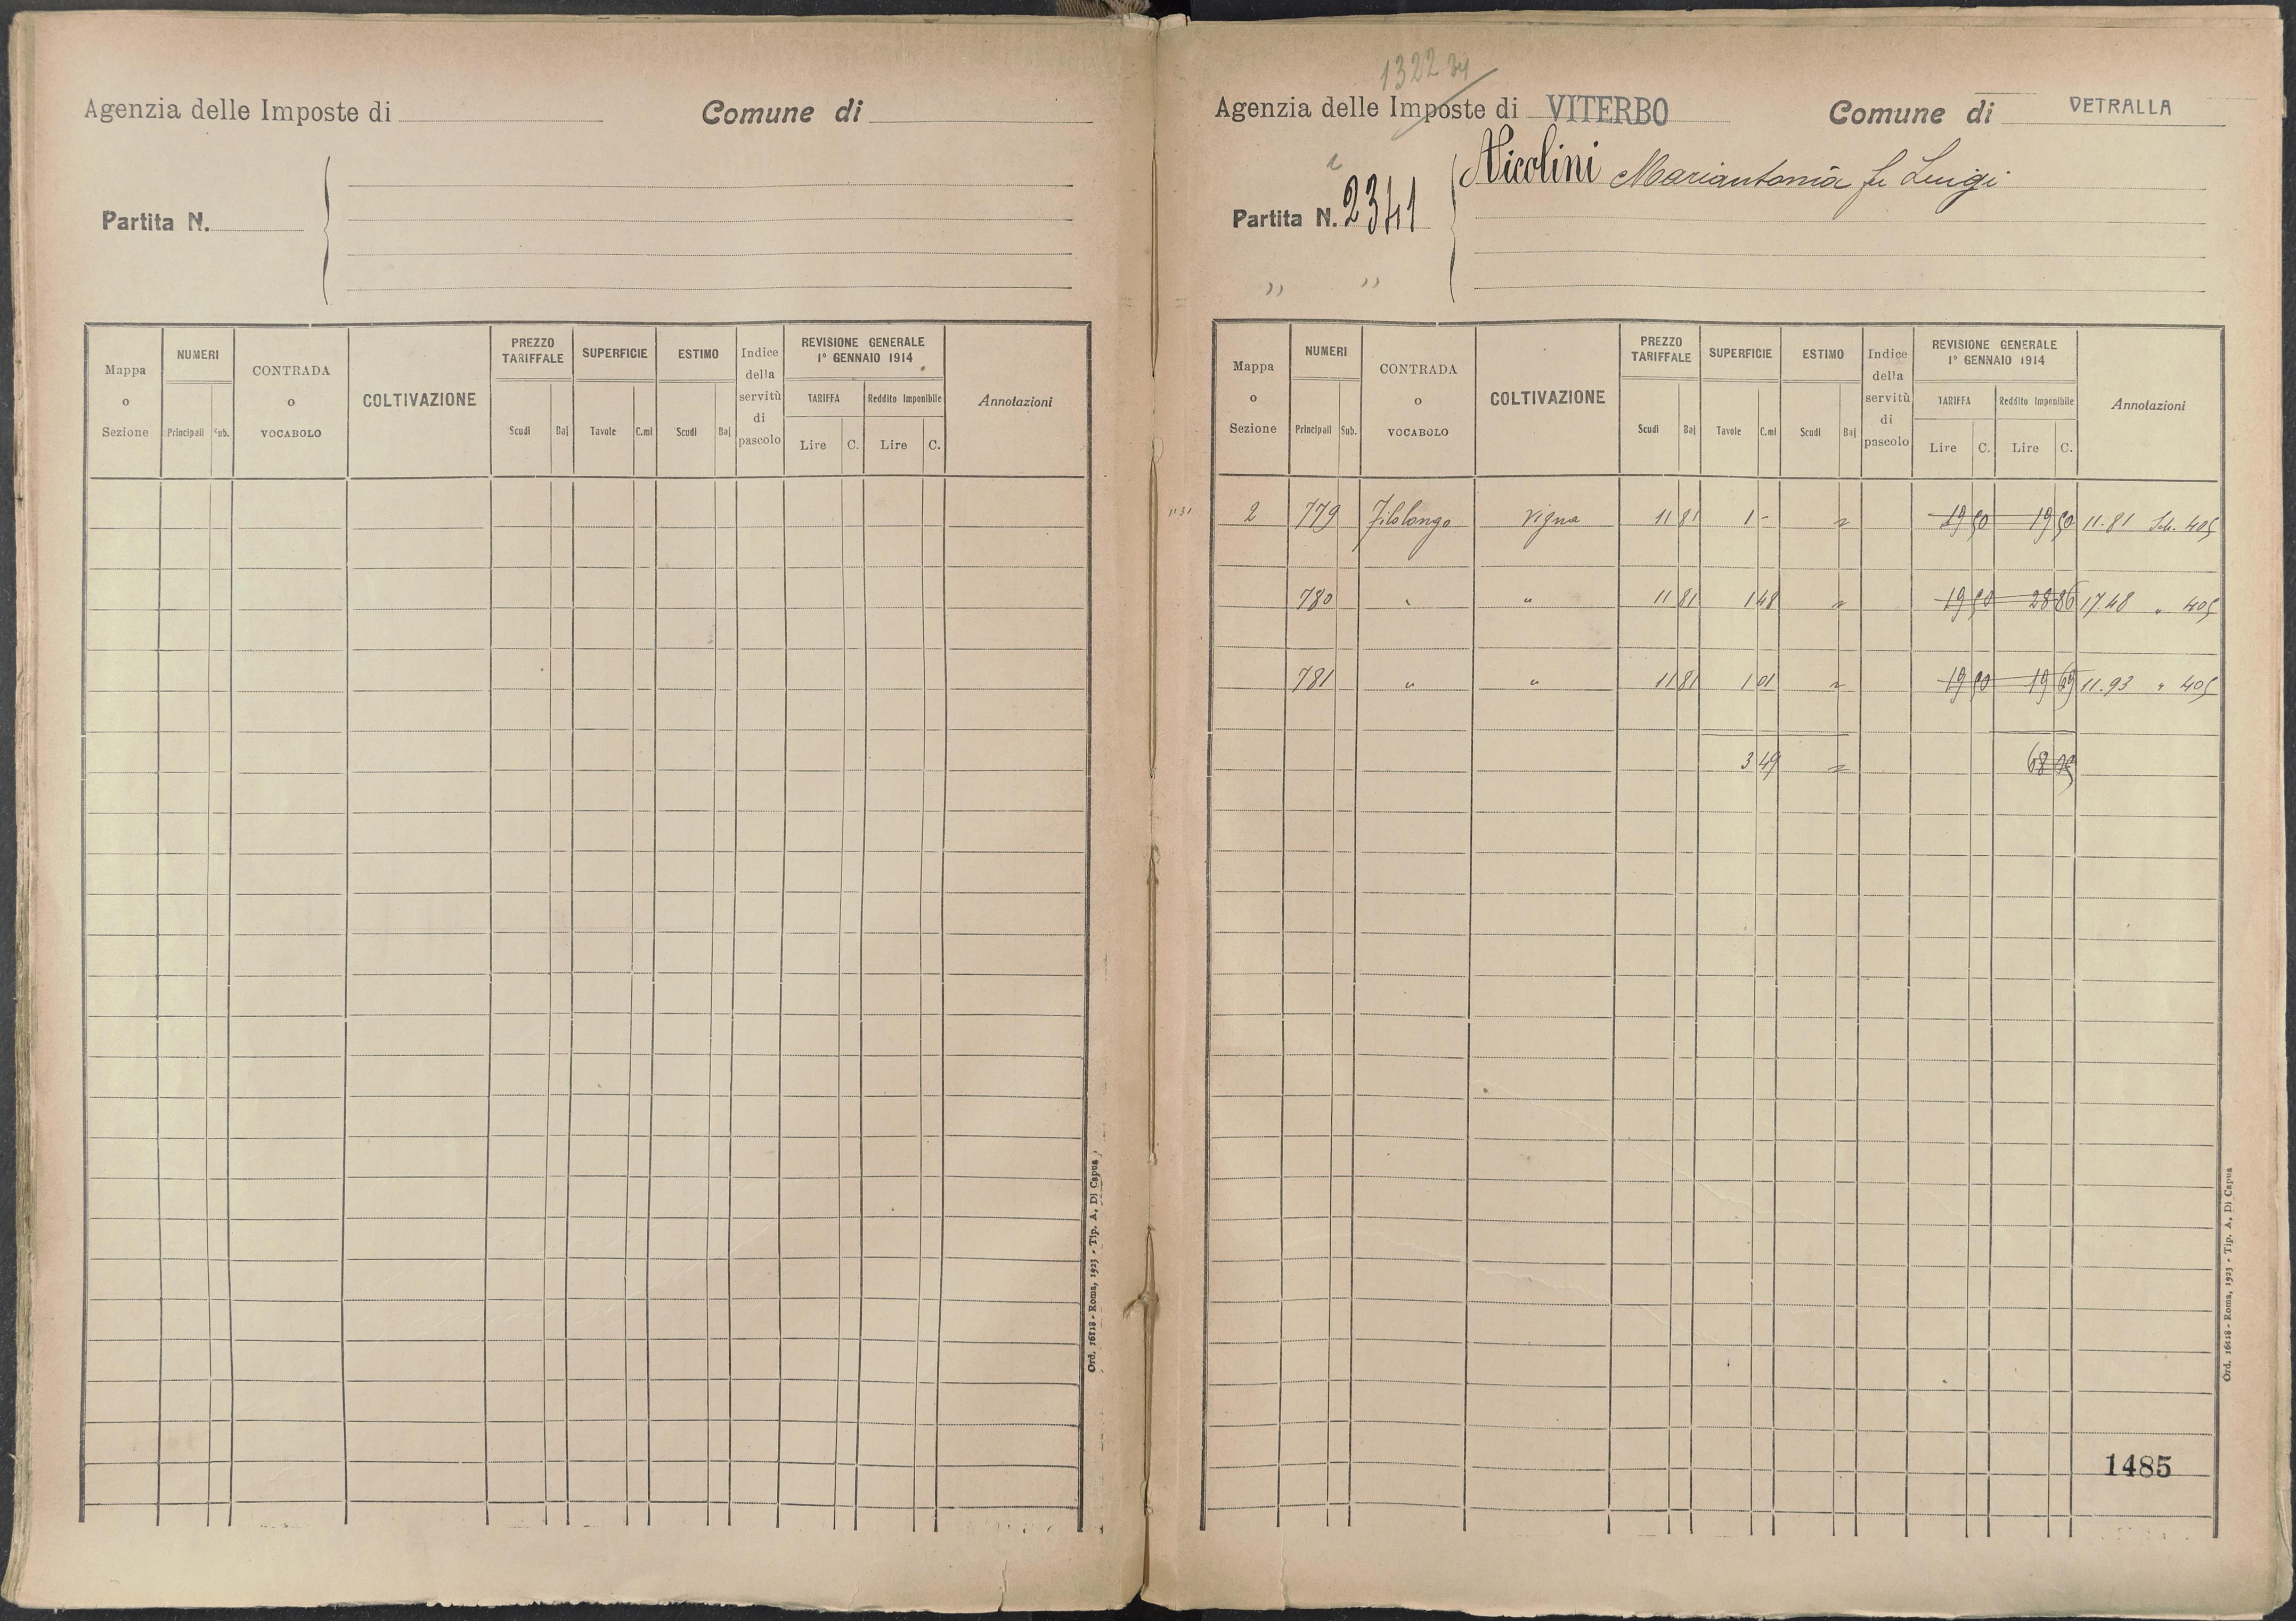 Agenzia delle Imposte di
Comune di
Partita N.
Mappa o Sezione
NUMERI
Principali
Sub.
CONTRADA o VOCABOLO
COLTIVAZIONE
PREZZO TARIFFALE
Scudi
Baj
SUPERFICIE
Tavole
C.mi
ESTIMO
Scudi
Baj
Indice della servitù di pascolo
REVISIONE GENERALE
1° GENNAIO 1914
TARIFFA
Reddito Imponibile
Lire
C.
Lire
C.
Annotazioni
Ord. 16118 - Roma, 1923 - Tip. A. Di Capua
1322
Agenzia delle Imposte di VITERBO
Comune di VETRALLA
Partita N. 2341
Nicolini Mariantonia fu Luigi
" "
Mappa o Sezione
NUMERI
Principali
Sub.
CONTRADA o VOCABOLO
COLTIVAZIONE
PREZZO TARIFFALE
Scudi
Baj
SUPERFICIE
Tavole
C.mi
ESTIMO
Scudi
Baj
Indice della servitù di pascolo
REVISIONE GENERALE
1° GENNAIO 1914
TARIFFA
Reddito Imponibile
Lire
C.
Lire
C.
Annotazioni
2 779 Filolongo Vigna 11 81 1 - 19 50 19 50 11.81 Sch. 405
780 " " 11 81 1 48 19 50 28 86 17 48 " 405
781 " " 11 81 1 01 19 50 19 69 11.93 " 405
3 49 68 05
1485
Ord. 16118 - Roma, 1923 - Tip. A. Di Capua